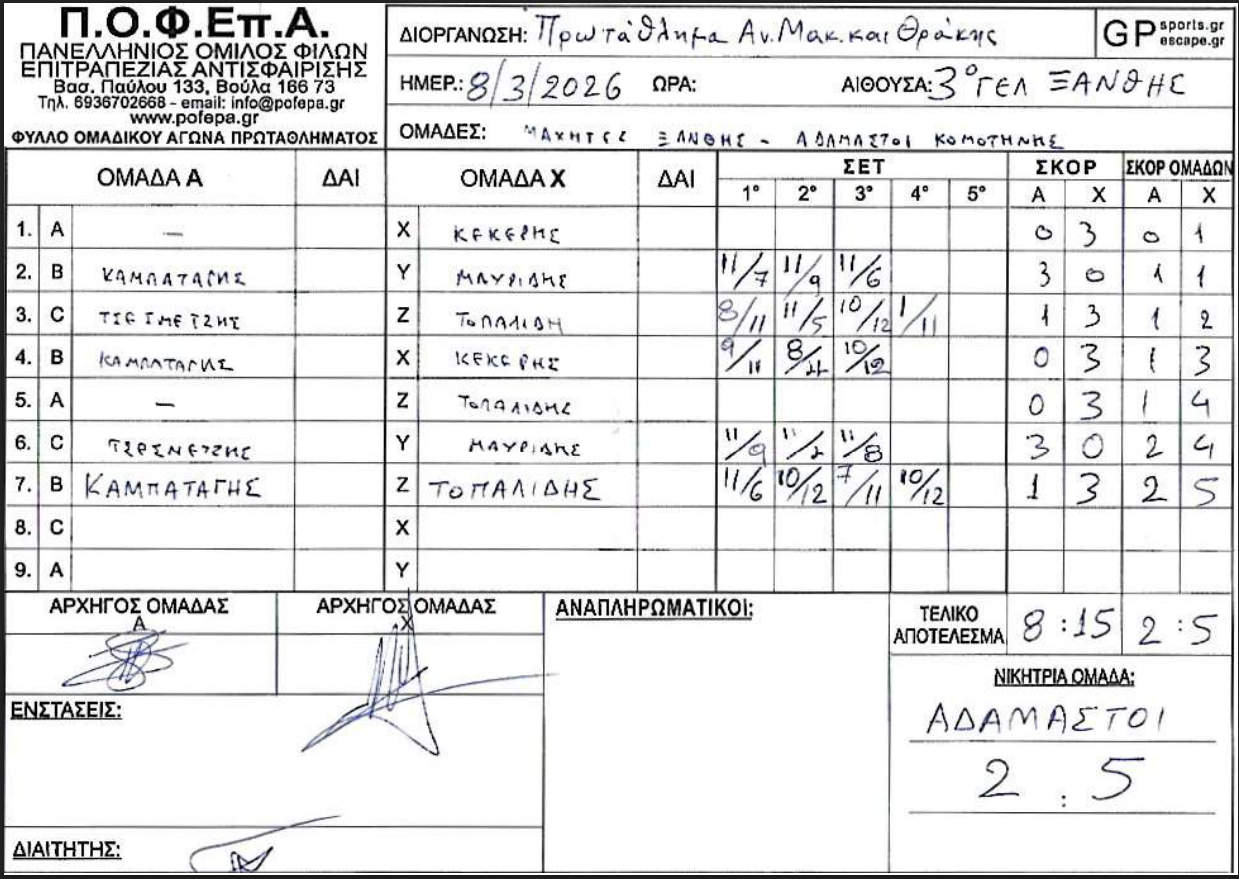 Π.Ο.Φ.Επ.Α.
ΠΑΝΕΛΛΗΝΙΟΣ ΟΜΙΛΟΣ ΦΙΛΩΝ
ΕΠΙΤΡΑΠΕΖΙΑΣ ΑΝΤΙΣΦΑΙΡΙΣΗΣ
Βασ. Παύλου 133, Βούλα 166 73
Τηλ. 6936702668 - email: info@pofepa.gr
www.pofepa.gr
ΦΥΛΛΟ ΟΜΑΔΙΚΟΥ ΑΓΩΝΑ ΠΡΩΤΑΘΛΗΜΑΤΟΣ
ΔΙΟΡΓΑΝΩΣΗ: Πρωτάθλημα Αν. Μακ. και Θράκης
GP sports.gr escape.gr
ΗΜΕΡ.: 8/3/2026 ΩΡΑ: ΑΙΘΟΥΣΑ: 3° ΓΕΛ ΞΑΝΘΗΣ
ΟΜΑΔΕΣ: ΜΑΧΗΤΕΣ ΞΑΝΘΗΣ - ΑΔΑΜΑΣΤΟΙ ΚΟΜΟΤΗΝΗΣ
ΟΜΑΔΑ Α ΔΑΙ ΟΜΑΔΑ Χ ΔΑΙ ΣΕΤ ΣΚΟΡ ΣΚΟΡ ΟΜΑΔΩΝ
1° 2° 3° 4° 5° Α Χ Α Χ
1. A — X ΚΕΚΕΡΗΣ 0 3 0 1
2. B ΚΑΜΠΑΤΑΓΗΣ Y ΜΑΥΡΙΔΗΣ 11/7 11/9 11/6 3 0 1 1
3. C Z ΤΟΠΑΛΙΔΗ 8/11 11/5 10/12 1/11 1 3 1 2
4. B ΚΑΜΠΑΤΑΓΗΣ X ΚΕΚΕΡΗΣ 9/11 8/11 10/12 0 3 1 3
5. A — Z ΤΟΠΑΛΙΔΗΣ 0 3 1 4
6. C Y ΜΑΥΡΙΔΗΣ 11/9 11/2 11/8 3 0 2 4
7. B ΚΑΜΠΑΤΑΓΗΣ Z ΤΟΠΑΛΙΔΗΣ 11/6 10/12 7/11 10/12 1 3 2 5
8. C X
9. A Y
ΑΡΧΗΓΟΣ ΟΜΑΔΑΣ Α ΑΡΧΗΓΟΣ ΟΜΑΔΑΣ Χ ΑΝΑΠΛΗΡΩΜΑΤΙΚΟΙ:
ΤΕΛΙΚΟ ΑΠΟΤΕΛΕΣΜΑ 8:15 2:5
ΝΙΚΗΤΡΙΑ ΟΜΑΔΑ:
ΑΔΑΜΑΣΤΟΙ
2 : 5
ΕΝΣΤΑΣΕΙΣ:
ΔΙΑΙΤΗΤΗΣ: